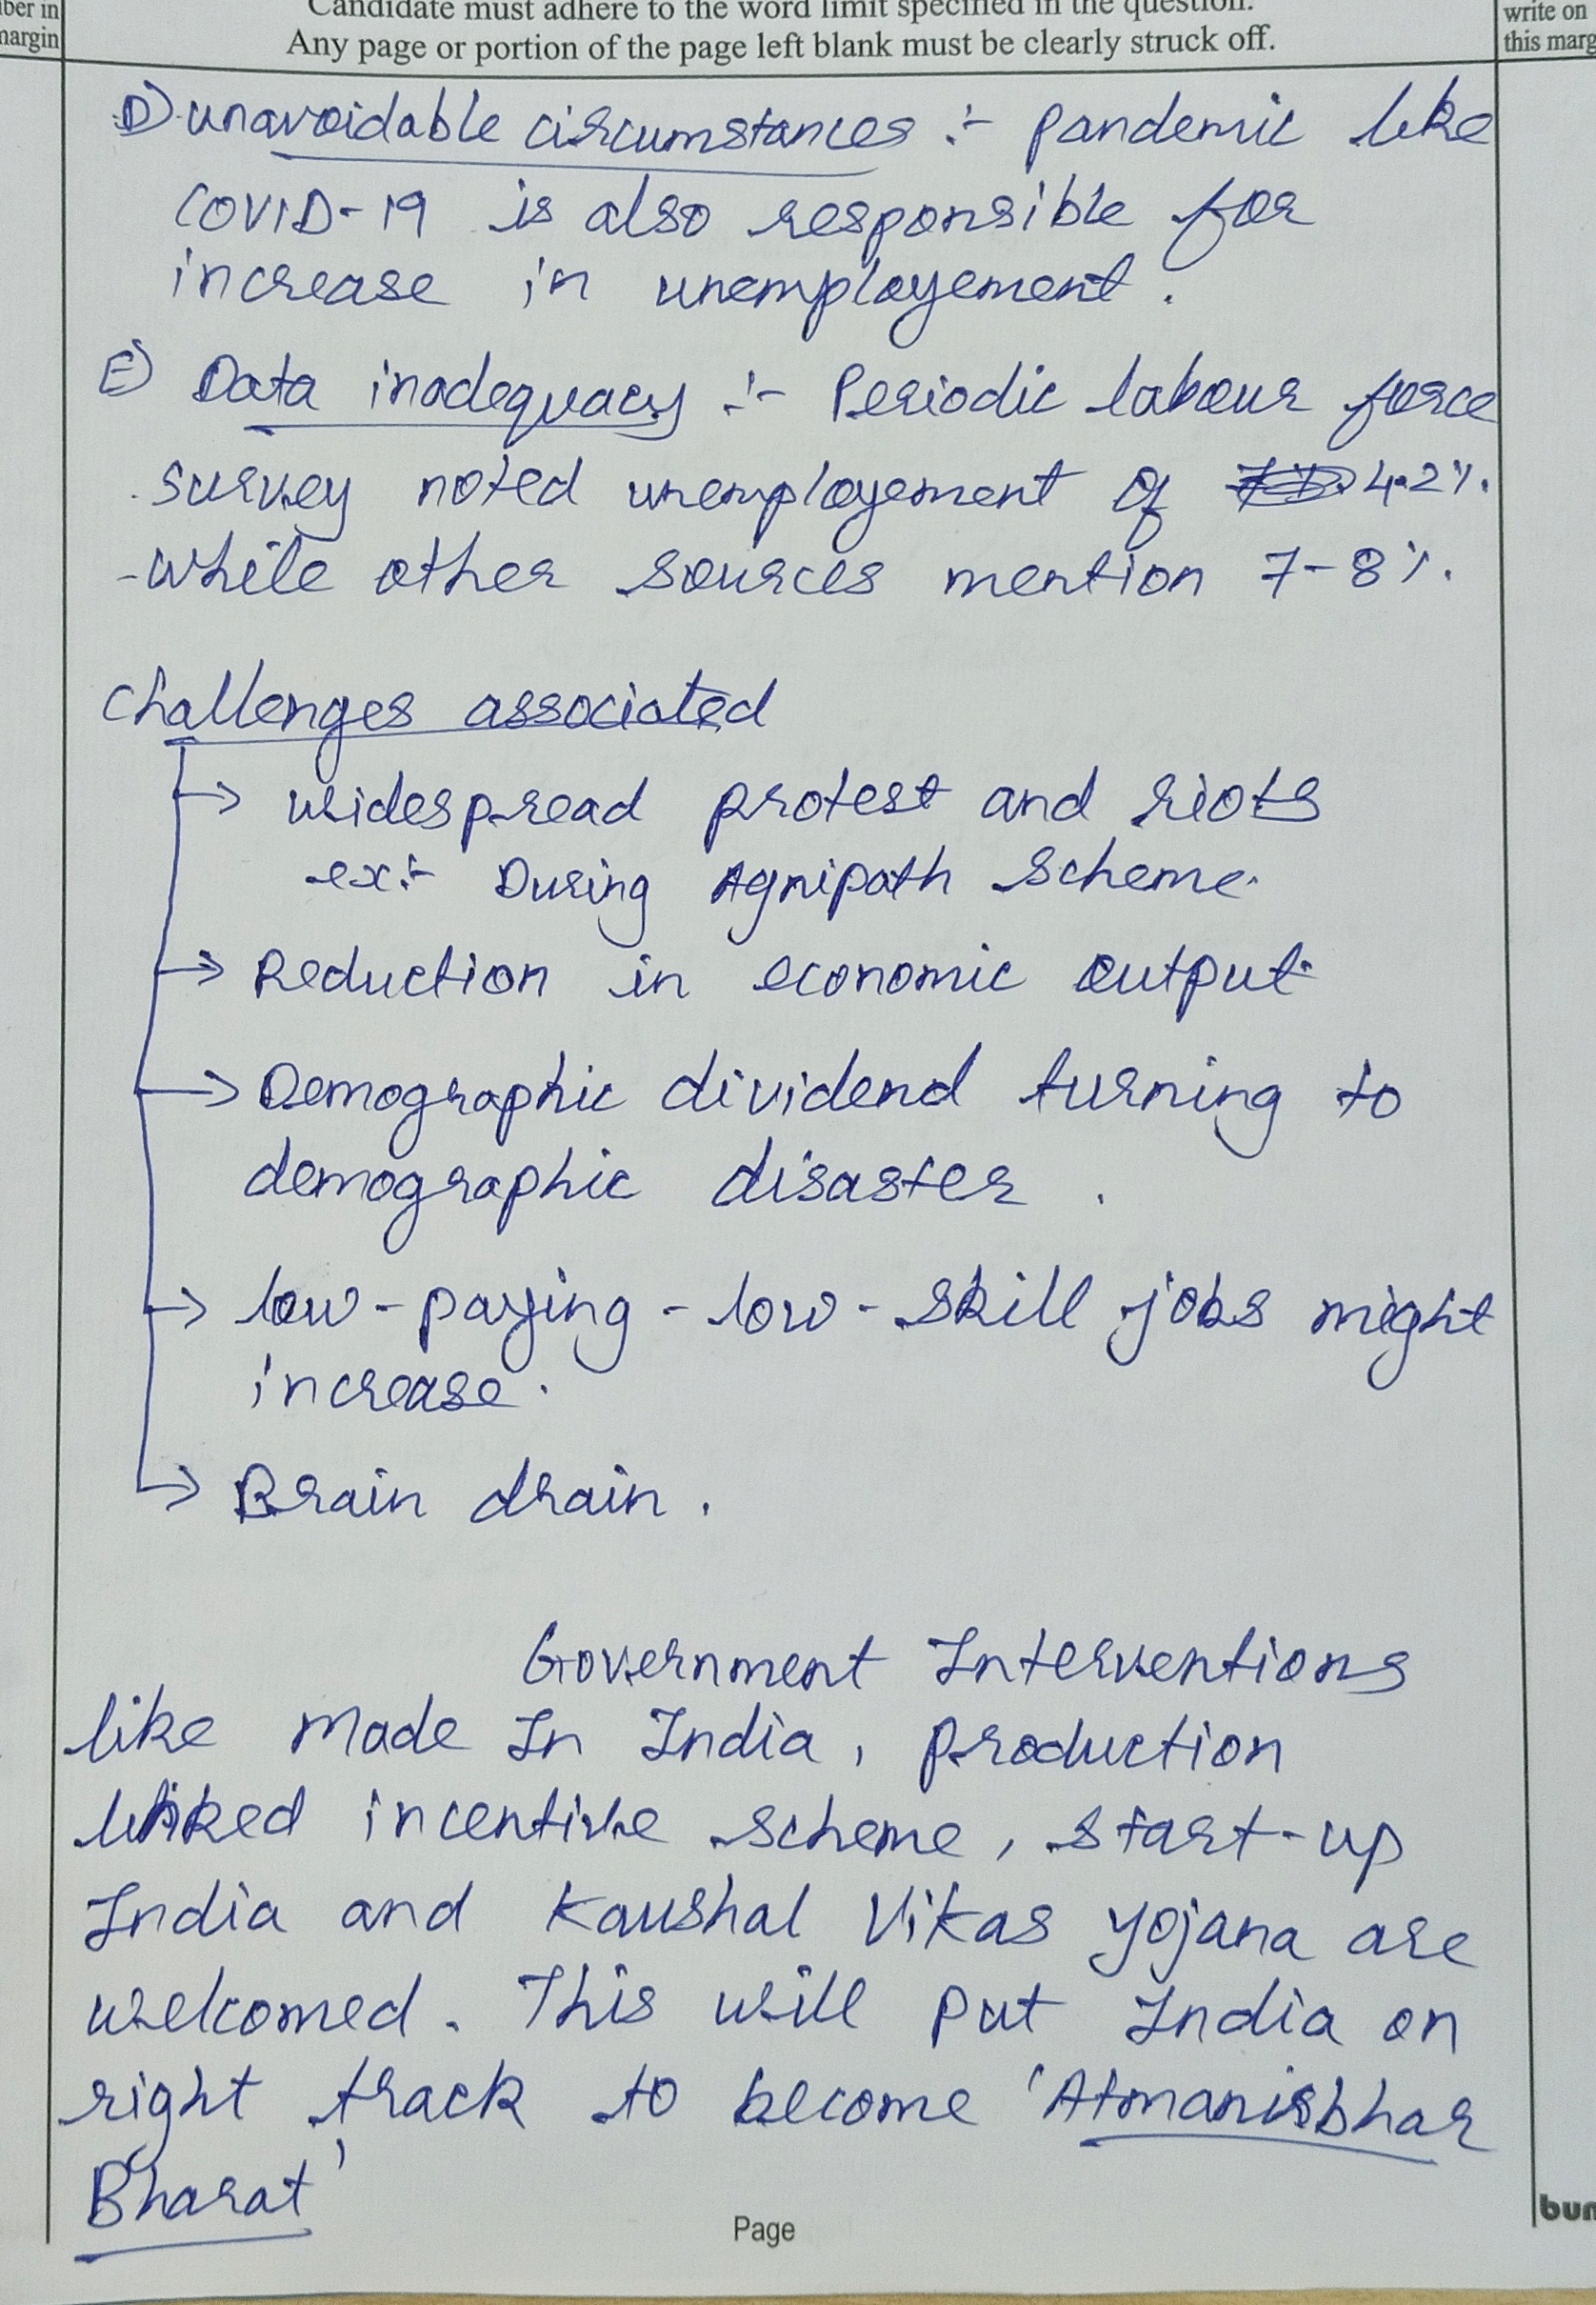 ber in
margin
Candidate must adhere to the word limit specified in the question.
Any page or portion of the page left blank must be clearly struck off.
write on
this marg
D) unavoidable circumstances :- pandemic like
COVID-19 is also responsible for
increase in unemployement.
E) Data inadequacy :- Periodic labour force
survey noted unemployement of 4.2%.
while other sources mention 7-8%.
Challenges associated
→ widespread protest and riots
ex:- During Agnipath Scheme.
→ Reduction in economic output.
→ Demographic dividend turning to
demographic disaster.
→ low-paying-low-skill jobs might
increase.
→ Brain drain.
Government Interventions
like Made In India, production
linked incentive scheme, start-up
India and Kaushal Vikas Yojana are
welcomed. This will put India on
right track to become 'Atmanirbhar
Bharat'
Page
bun